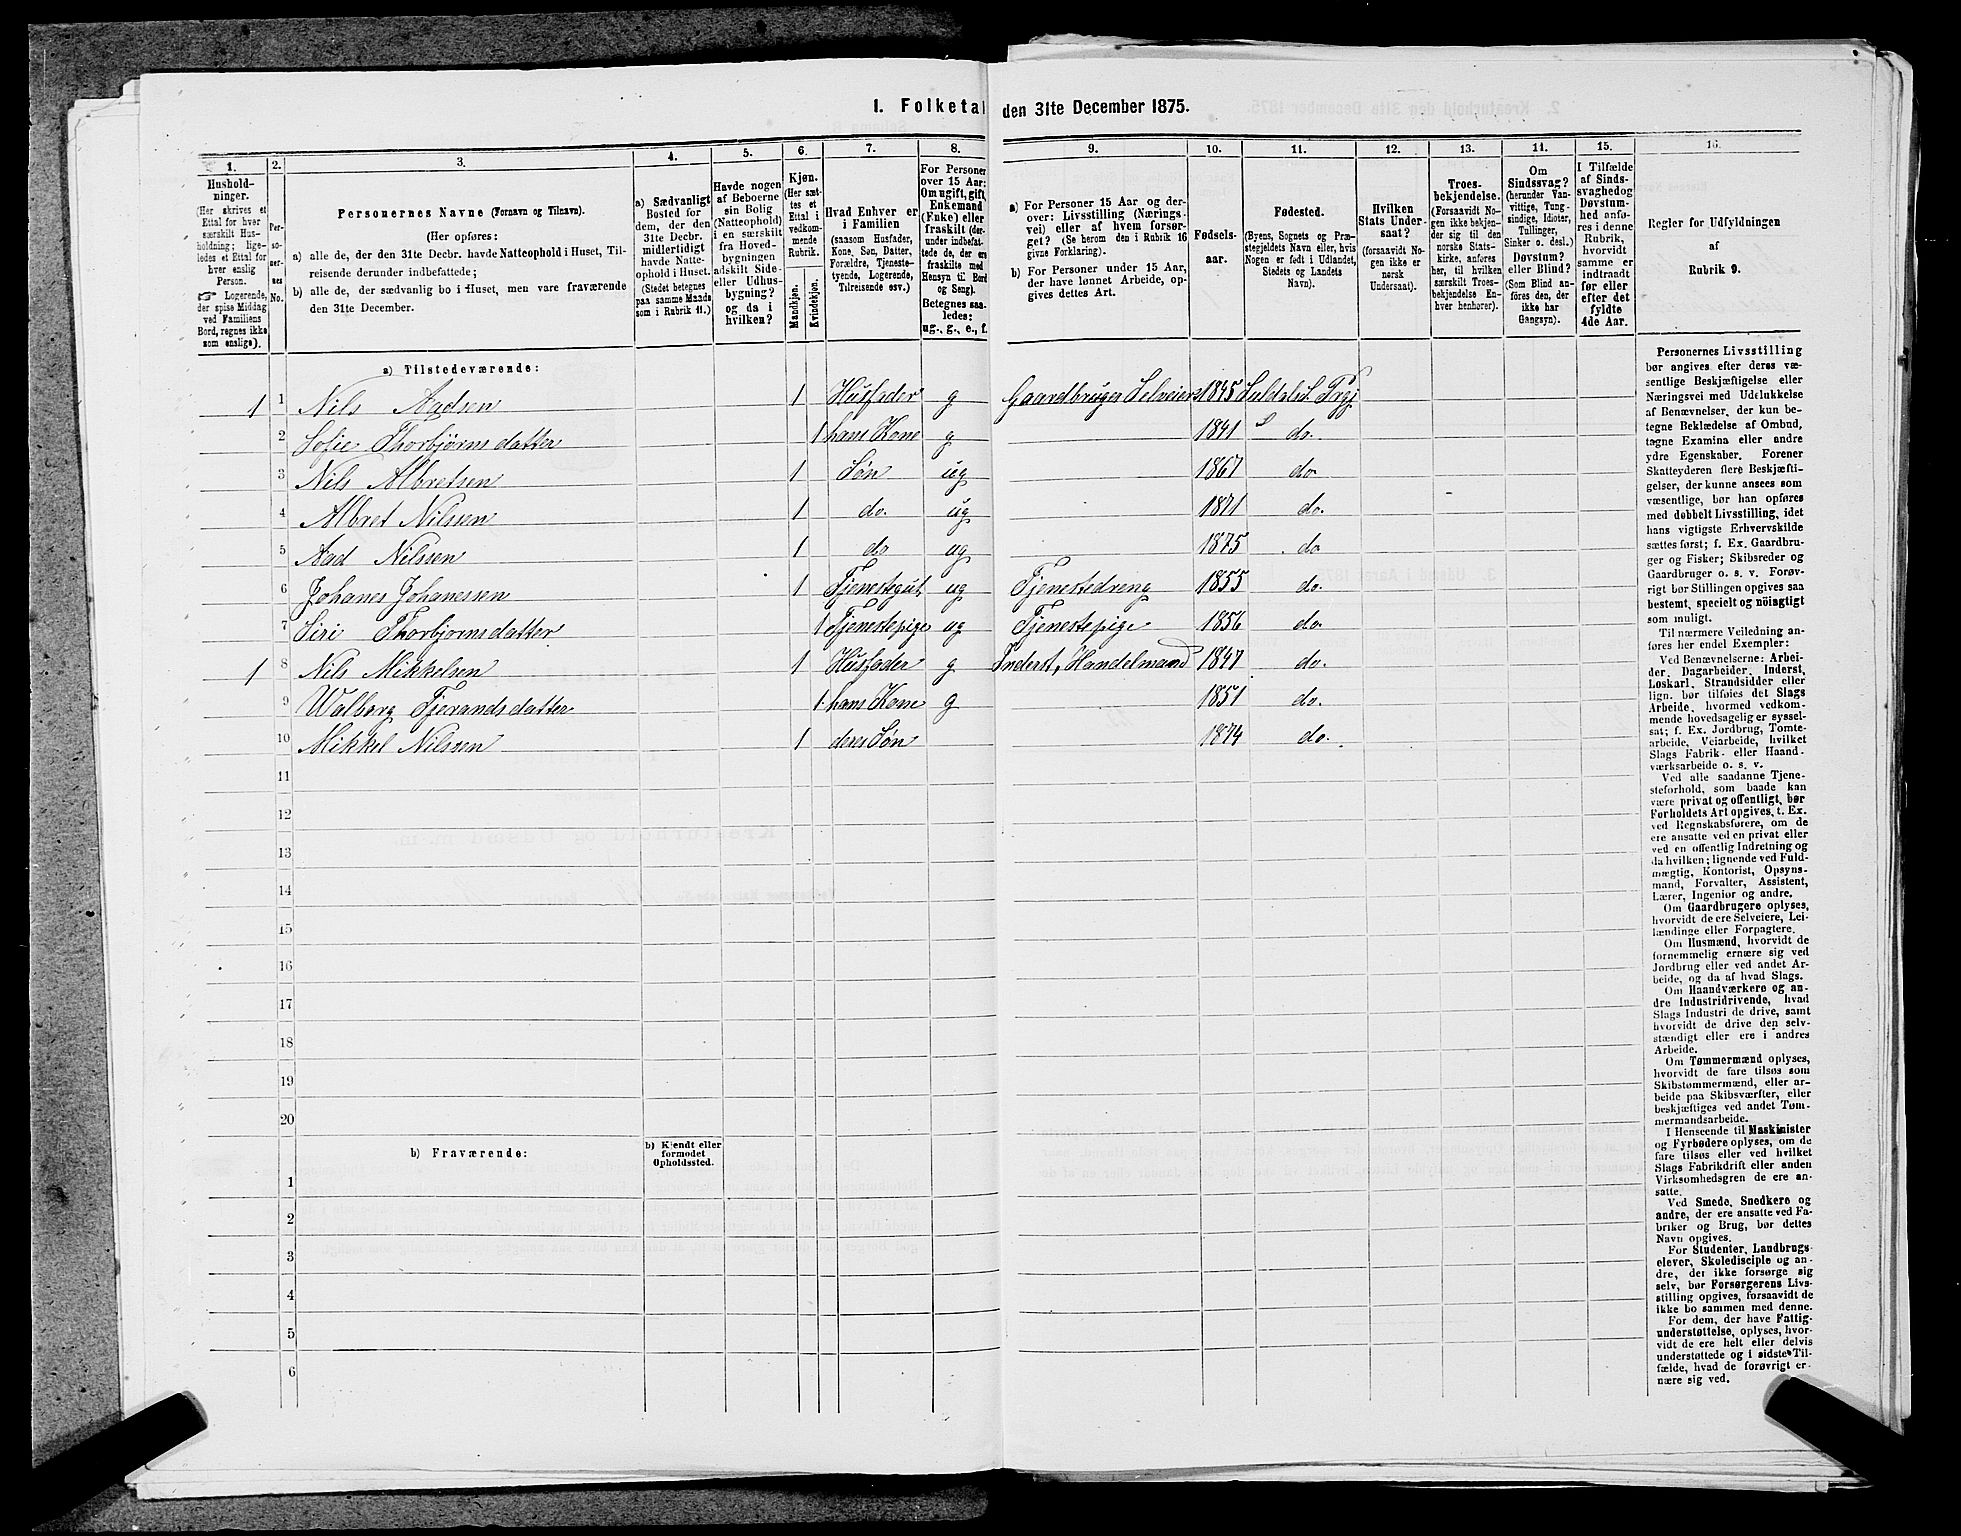 1. Folketal den 31te December 1875.
1. 2. 3. 4. 5. 6. 7. 8. 9. 10. 11. 12. 13. 14. 15. 16.
Husholdninger.
(Her skrives et
Ettal for hver
særskilt Husholdning;
ligeledes et Ettal for
hver enslig
Person.
☞ Logerende,
der spise Middag
ved Familiens
Bord, regnes ikke
som enslige).
Personernes No.
Personernes Navne (Fornavn og Tilnavn).
(Her opføres:
a) alle de, der den 31te Decbr. havde Natteophold i Huset, Tilreisende derunder indbefattede;
b) alle de, der sædvanlig bo i Huset, men vare fraværende
den 31te December.
a) Sædvanligt
Bosted for
dem, der den
31te Decbr.
midlertidigt
havde Natteophold i Huset.
(Stedet betegnes
paa samme Maade
som i Rubrik 11.)
Havde nogen
af Beboerne
sin Bolig
(Natteophold)
i en særskilt
fra Hovedbygningen
adskilt Side-
eller Udhusbygning?
og da i
hvilken?
Kjøn.
(Her sættes et
Ettal i
vedkommende
Rubrik.
Mandkjøn.
Kvindekjøn.
Hvad Enhver er
i Familien
(saasom Husfader,
Kone, Søn, Datter,
Forældre, Tjenestetyende, Logerende,
Tilreisende osv.)
For Personer
over 15 Aar:
Om ugift, gift,
Enkemand
(Enke) eller
fraskilt (derunder indbefattede de, der ere
fraskilte med
Hensyn til Bord
og Seng).
Betegnes saaledes:
ug., g., e., f.
a) For Personer 15 Aar og derover: Livsstilling (Næringsvei) eller af hvem forsørget? (Se herom den i Rubrik 16
givne Forklaring).
b) For Personer under 15 Aar,
der have lønnet Arbeide, opgives dettes Art.
Fødselsaar.
Fødested.
(Byens, Sognets og Præstegjeldets Navn eller, hvis
Nogen er født i Udlandet,
Stedets og Landets
Navn).
Hvilken
Stats Undersaat?
(forsaavidt Nogen ikke er
norsk
Undersaat).
Troesbekjendelse.
(Forsaavidt Nogen ikke bekjender sig til den
norske Statskirke, anføres
her, til hvilken
særskilt Troesbekjendelse Enhver henhører).
Om
Sindssvag?
(herunder Vanvittige, Tungsindige, Idioter,
Sinker o. desl.)
Døvstum?
eller Blind?
(Som Blind anføres den, der
ikke har
Gangsyn).
I Tilfælde
af Sindssvaghed og
Døvstumhed anføres i denne
Rubrik,
hvorvidt
samme er
indtraadt
før eller
efter det
fyldte
4de Aar.
Regler for Udfyldningen
af
Rubrik 9.
a) Tilstedeværende:
1 1 Nils Aadsen 1 Husfader g Gaardbruger Selveier 1845 Suldalst Prgj
2 Sofie Thorbjørnsdatter 1 hans Kone g 1841 do.
3 Nils Albretsen 1 Søn ug 1867 do
4 Albret Nilssen 1 do. ug 1871 do.
5 Aad Nilssen 1 do ug 1875 do
6 Johanes Johanessen 1 Tjenestegut ug Tjenestedreng 1855 do.
7 Siri Thorbjørnsdatter 1 Tjenestepige ug Tjenestepige 1856 do
1 8 Nils Mikkelsen 1 Husfader g Inderst, Handelmand 1847 do.
9 Walborg Tjerandsdatter 1 hans Kone g 1851 do.
10 Mikkel Nilssen 1 deres Søn 1874 do.
11
12
13
14
15
16
17
18
19
20
b) Fraværende:
b) Kjendt eller
formodet
Opholdssted.
1
2
3
4
5
6
Personernes Livsstilling
bør angives efter deres væsentlige Beskjæftigelse eller
Næringsvei med Udelukkelse
af Benævnelser, der kun betegne Beklædelse af Ombud,
tagne Examina eller andre
ydre Egenskaber. Forener
Skatteyderen flere Beskjæftigelser, der kunne ansees som
væsentlige, bør han opføres
med dobbelt Livsstilling, idet
hans vigtigste Erhvervskilde
sættes først; f. Ex. Gaardbruger og Fisker; Skibsreder og
Gaardbruger o. s. v. Forøvrigt bør Stillingen opgives saa
bestemt, specielt og nöiagtigt
som muligt.
Til nærmere Veiledning anføres her endel Exempler:
Ved Benævnelserne: Arbeider, Dagarbeider, Inderst,
Løskarl, Strandsidder eller
lign. bør tilføies det Slags
Arbeide, hvormed vedkommende hovedsagelig er sysselsat; f. Ex. Jordbrug, Tomtearbeide, Veiarbeide, hvilket
Slags Fabrik- eller Haandværksarbeide o. s. v.
Ved alle saadanne Tjenesteforhold, som baade kan
være privat og offentligt, bør
Forholdets Art opgives, t. Ex.
ved Regnskabsførere, om de
ere ansatte ved en privat eller
ved en offentlig Indretning og
da hvilken; lignende ved Fuldmægtig, Kontorist, Opsynsmand, Forvalter, Assistent,
Lærer, Ingeniør og andre.
Om Gaardbrugere oplyses,
hvorvidt de ere Selveiere, Leilændinge eller Forpagtere.
Om Husmænd, hvorvidt de
fornemmelig ernære sig ved
Jordbrug eller ved andet Arbeide, og da af hvad Slags.
Om Haandværkere og andre Industridrivende, hvad
Slags Industri de drive, samt
hvorvidt de drive den selvstændigt eller ere i andres
Arbeide.
Om Tømmermænd oplyses,
hvorvidt de fare tilsøs som
Skibstømmermænd, eller arbeide paa Skibsværfter, eller
beskjæftiges ved andet Tømmermandsarbeide.
I Henseende til Maskinister
og Fyrbødere oplyses, om de
fare tilsøs eller ved hvilket
Slags Fabrikdrift eller anden
Virksomhedsgren de ere ansatte.
Ved Smede, Snedkere og
andre, der ere ansatte ved Fabriker og Brug, bør dettes
Navn opgives.
For Studenter, Landbrugselever, Skoledisciple og andre, der ikke forsørge sig
selv, bør Forsørgerens Livsstilling opgives, forsaavidt de
ikke bo sammen med denne.
For dem, der have Fattigunderstøttelse, oplyses, hvorvidt de ere helt eller delvis
understøttede og i sidste Tilfælde, hvad de forøvrigt ernære sig ved.